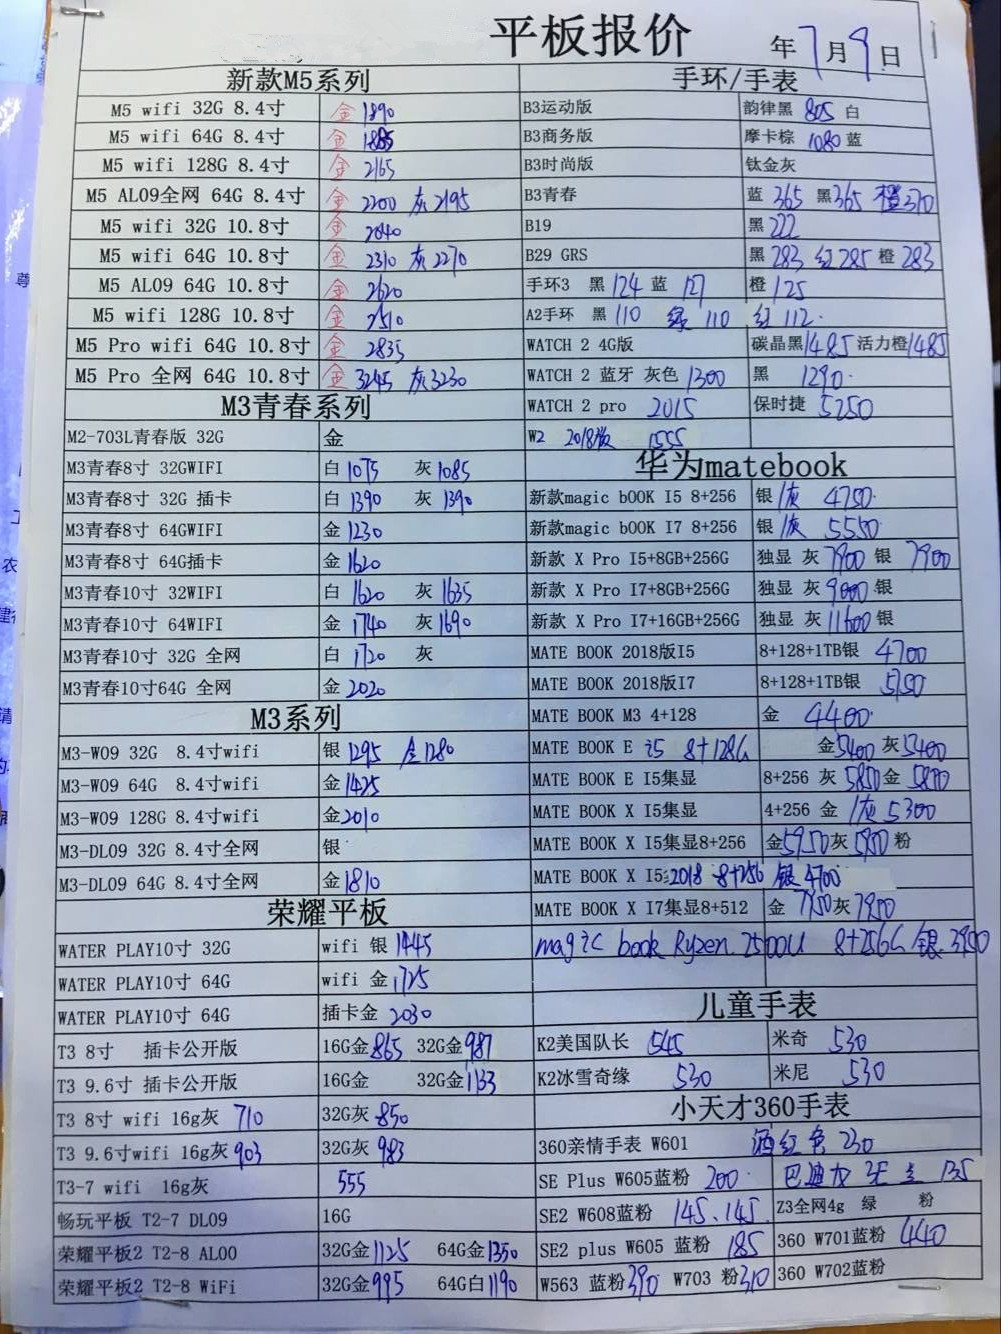 平板报价
年7月9日
新款M5系列
M5 wifi 32G 8.4寸 金 1890
M5 wifi 64G 8.4寸 金
M5 wifi 128G 8.4寸 金 2165
M5 AL09全网 64G 8.4寸 金 2200 灰2195
M5 wifi 32G 10.8寸 金 2040
M5 wifi 64G 10.8寸 金 2310 灰2270
M5 AL09 64G 10.8寸 金 2620
M5 wifi 128G 10.8寸 金 2510
M5 Pro wifi 64G 10.8寸 金 2835
M5 Pro 全网 64G 10.8寸 金 3245 灰3230
M3青春系列
M2-703L青春版 32G 金
M3青春8寸 32GWIFI 白 1075 灰 1085
M3青春8寸 32G 插卡 白 1390 灰 1390
M3青春8寸 64GWIFI 金 1230
M3青春8寸 64G插卡 金 1620
M3青春10寸 32WIFI 白 1620 灰 1635
M3青春10寸 64WIFI 金 1740 灰 1690
M3青春10寸 32G 全网 白 1720 灰
M3青春10寸64G 全网 金 2020
M3系列
M3-W09 32G 8.4寸wifi 银 1295 金1280
M3-W09 64G 8.4寸wifi 金 1425
M3-W09 128G 8.4寸wifi 金2010
M3-DL09 32G 8.4寸全网 银
M3-DL09 64G 8.4寸全网 金 1810
荣耀平板
WATER PLAY10寸 32G wifi 银 1445
WATER PLAY10寸 64G wifi 金 1725
WATER PLAY10寸 64G 插卡金 2030
T3 8寸 插卡公开版 16G金 865 32G金 987
T3 9.6寸 插卡公开版 16G金 32G金 1133
T3 8寸 wifi 16g灰 710 32G灰 850
T3 9.6寸wifi 16g灰 903 32G灰 983
T3-7 wifi 16g灰 555
畅玩平板 T2-7 DL09 16G
荣耀平板2 T2-8 AL00 32G金1125 64G金1350
荣耀平板2 T2-8 WiFi 32G金995 64G白1190
手环/手表
B3运动版 韵律黑 805 白
B3商务版 摩卡棕 1080 蓝
B3时尚版 钛金灰
B3青春 蓝 365 黑365 橙370
B19 黑 222
B29 GRS 黑 283 红 285 橙 283
手环3 黑 124 蓝 127 橙 125
A2手环 黑 110 绿 110 红 112
WATCH 2 4G版 碳晶黑1485 活力橙1485
WATCH 2 蓝牙 灰色 1300 黑 1290
WATCH 2 pro 2015 保时捷 5250
W2 2018版 1555
华为matebook
新款magic bOOK I5 8+256 银/灰 4750
新款magic bOOK I7 8+256 银/灰 5550
新款 X Pro I5+8GB+256G 独显 灰 7900 银 7900
新款 X Pro I7+8GB+256G 独显 灰 9000 银
新款 X Pro I7+16GB+256G 独显 灰 11600 银
MATE BOOK 2018版I5 8+128+1TB银 4700
MATE BOOK 2018版I7 8+128+1TB银 5750
MATE BOOK M3 4+128 金 4400
MATE BOOK E i5 8+128G 金5400 灰5400
MATE BOOK E I5集显 8+256 灰 5850 金 5870
MATE BOOK X I5集显 4+256 金/灰 5300
MATE BOOK X I5集显8+256 金5950 灰 5900 粉
MATE BOOK X I5 2018 8+256 银 4700
MATE BOOK X I7集显8+512 金 7950 灰 7950
magic book Ryzen 2500U 8+256G 银 3900
儿童手表
K2美国队长 545 米奇 530
K2冰雪奇缘 530 米尼 530
小天才360手表
360亲情手表 W601 酒红色 230
SE Plus W605蓝粉 200 巴迪龙 135
SE2 W608蓝粉 145、145 Z3全网4g 绿 粉
SE2 plus W605 蓝粉 185 360 W701蓝粉 440
W563 蓝粉 390 W703 粉310 360 W702蓝粉